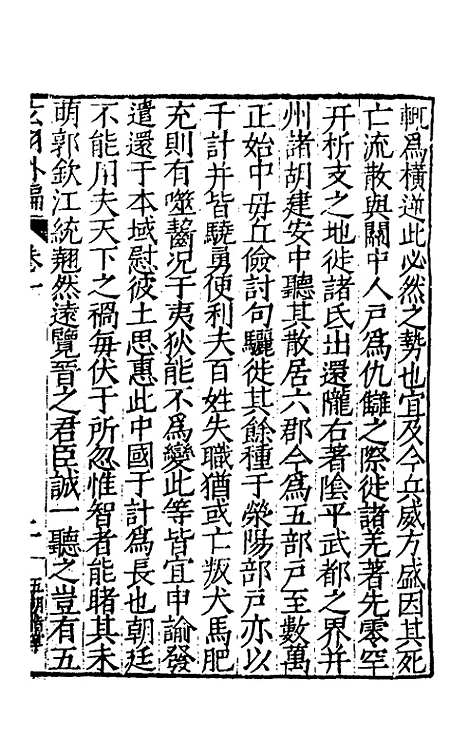 輒爲橫逆此必然之勢也宜及今兵威方盛因其死
亡流散與關中人戸爲仇讎之際徙諸羌著先零罕
幵析支之地徙諸氐出還隴右著陰平武都之界并
州諸胡建安中聽其散居六郡今爲五部戸至數萬
正始中毋丘儉討句驪徙其餘種于滎陽部戸亦以
千計并皆驍勇使利夫百姓失職猶或亡叛犬馬肥
充則有噬齧況于夷狄能不爲變此等皆宜申諭發
遣還于本域慰彼土思惠此中國于計爲長也朝廷
不能用夫天下之禍每伏于所忽惟智者能睹其未
萌郭欽江統翹然遠覽晉之君臣誠一聽之豈有五
外編
卷一